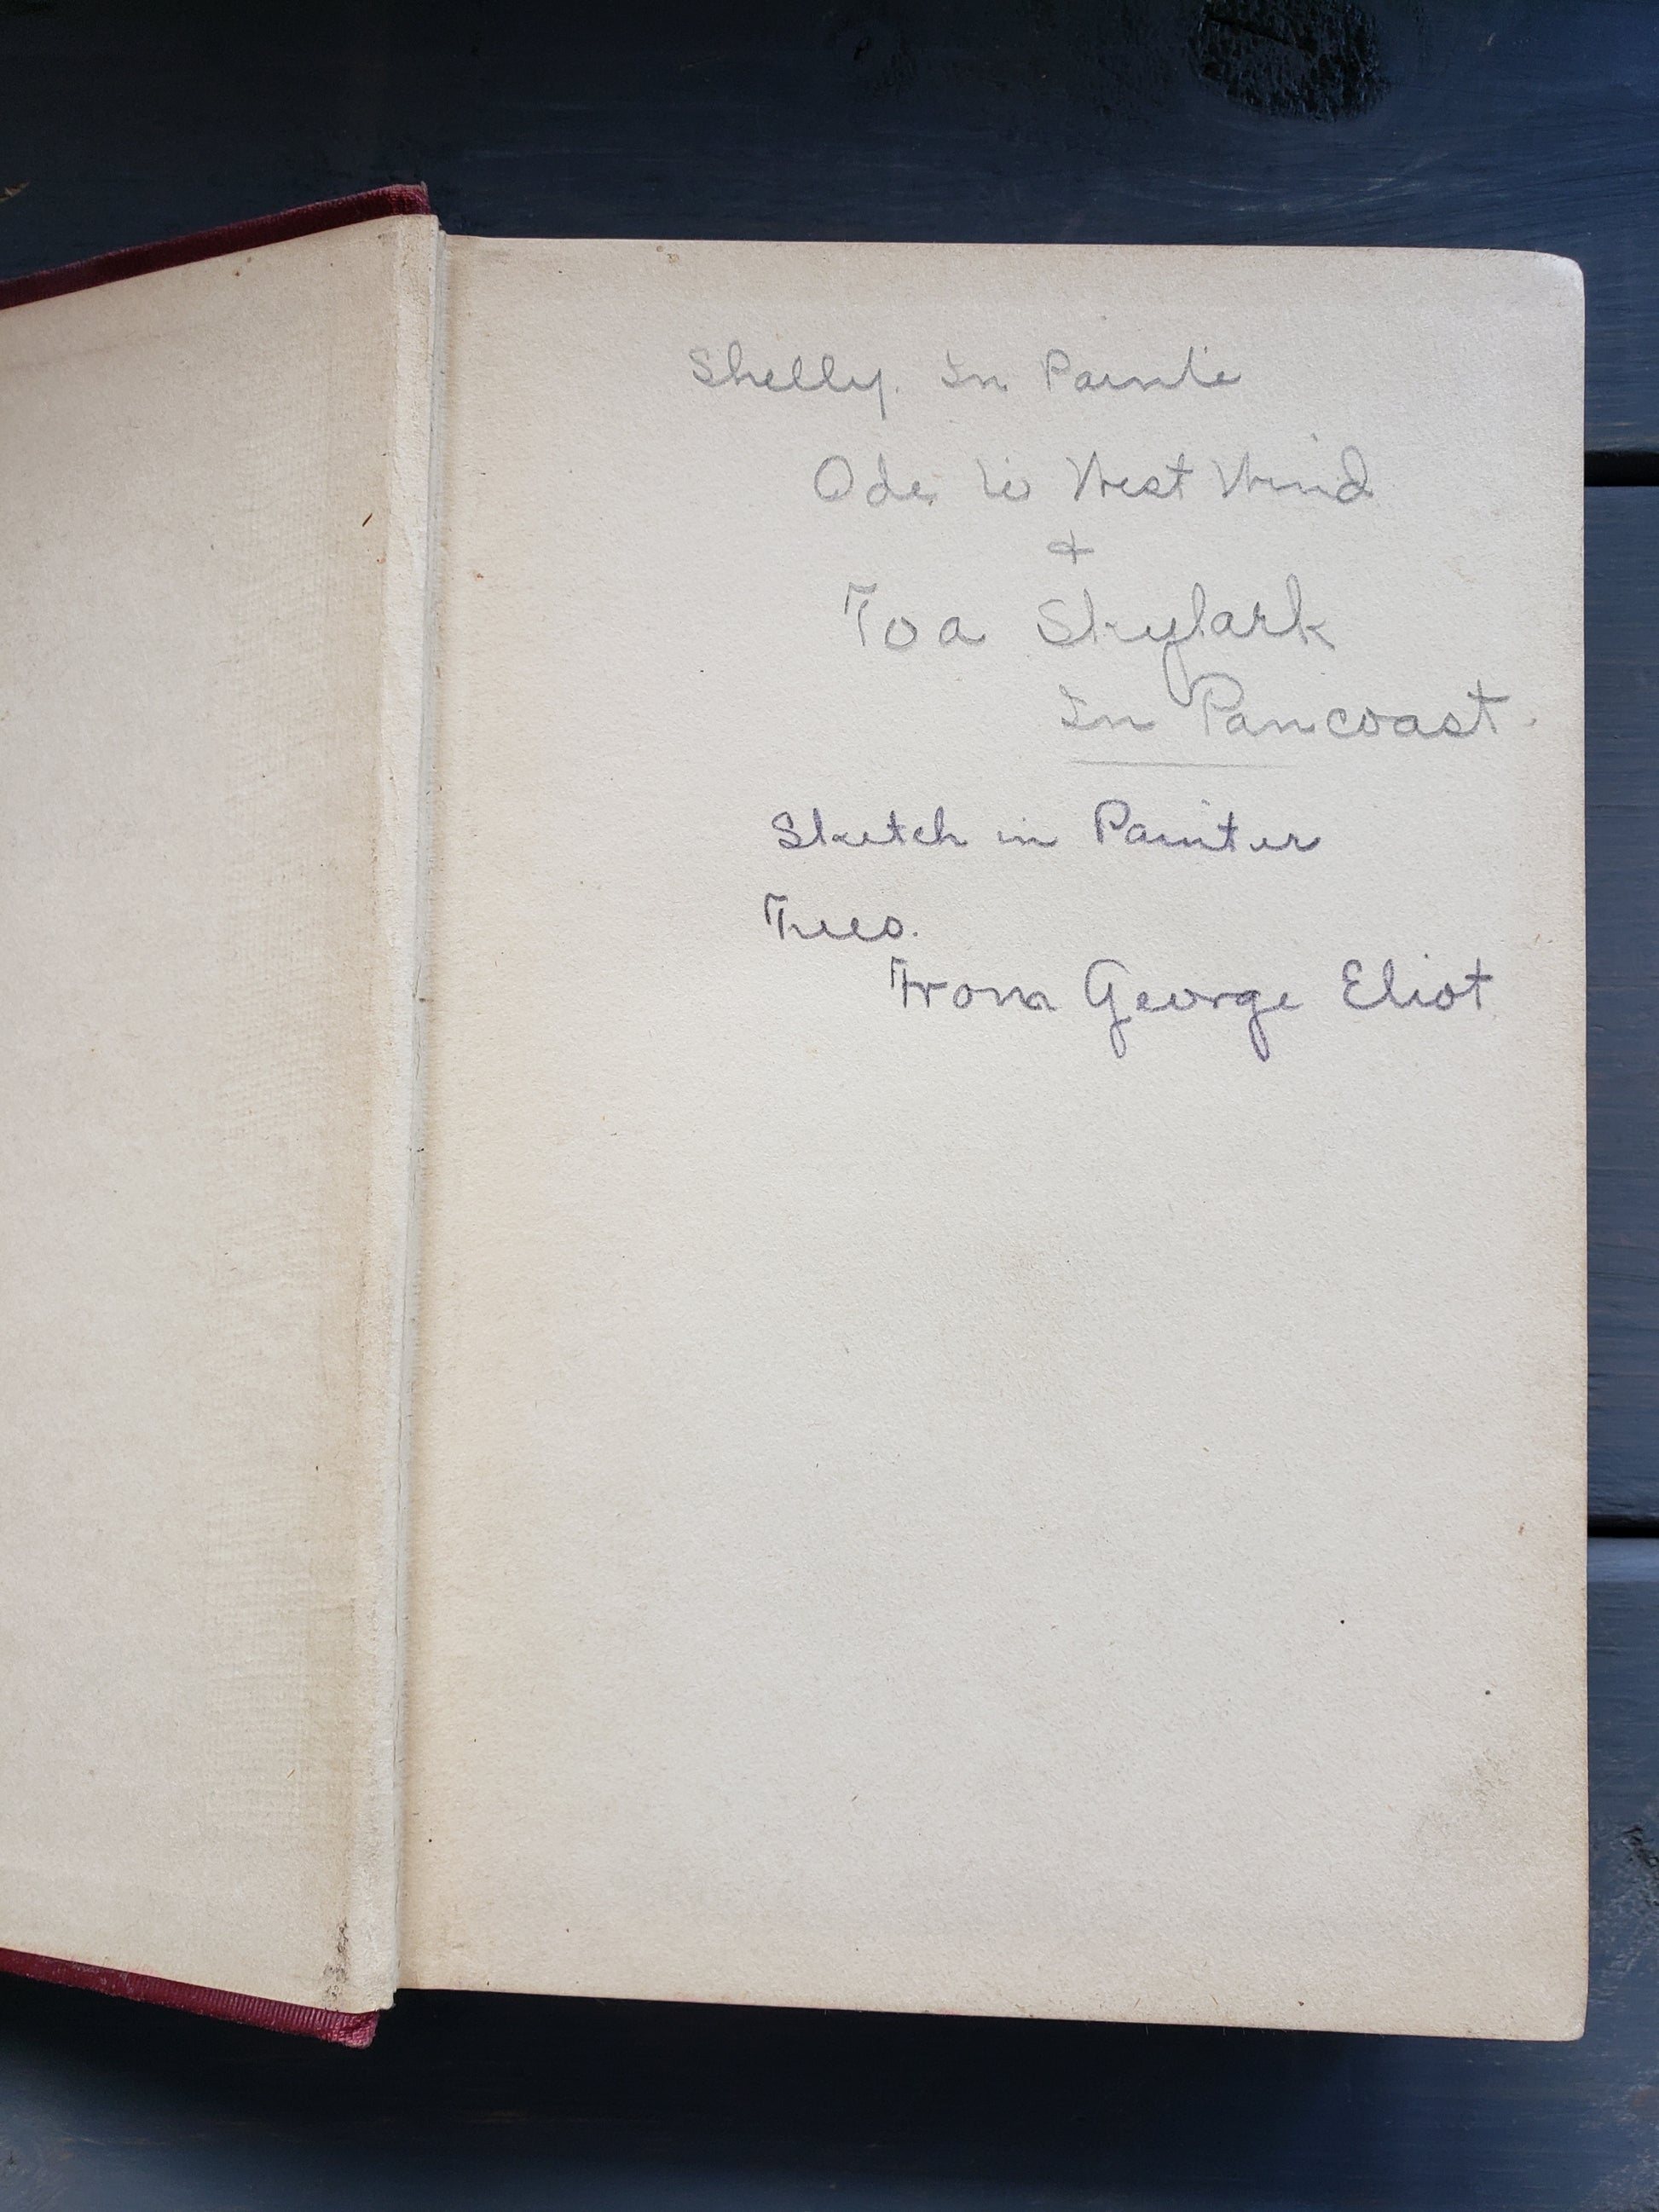 Shelly. In Painte
Ode to West Wind
&
To a Skylark
In Pancoast.
Sketch in Painter
Trees.
From George Eliot